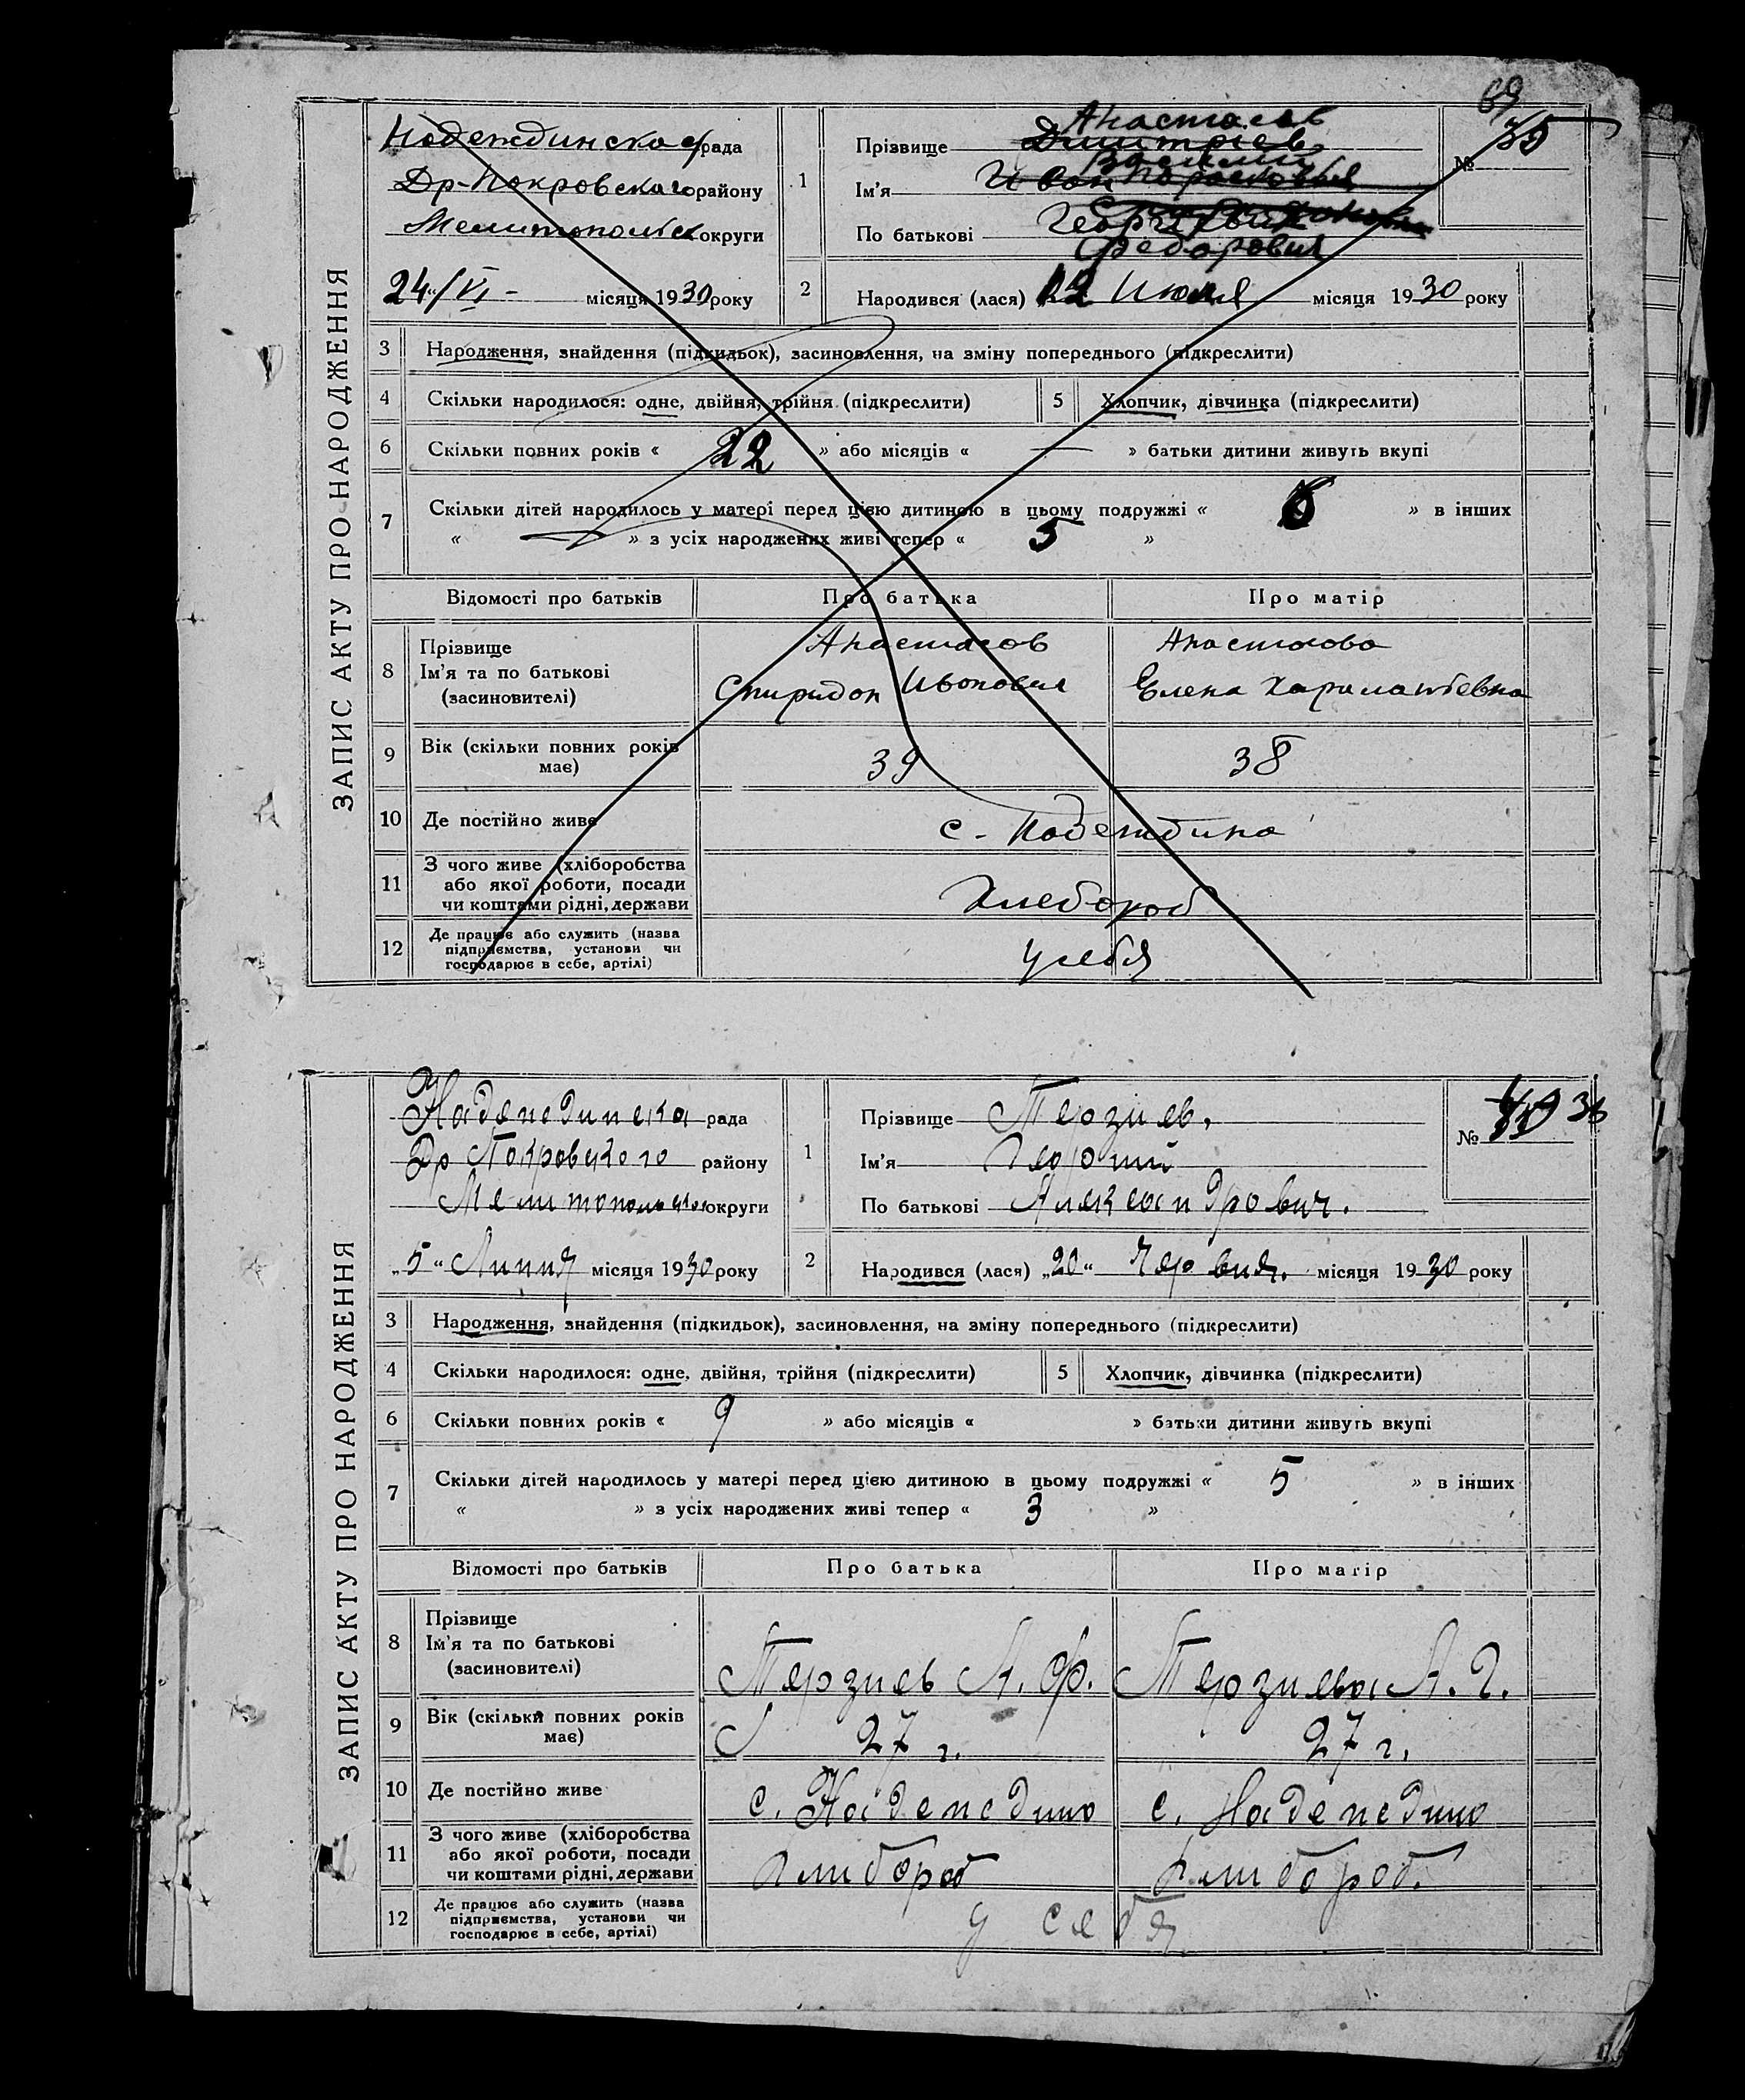 69
ЗАПИС АКТУ ПРО НАРОДЖЕННЯ
Надеждинская рада
Др-Покровского району
Мелитопольск округи
24/VI - місяця 1930 року
1
Анастасов
Прізвище Димитриев
Василий
Ім'я Иван
По батькові Георгиевич
Федорович
№ 35
2 Народився (лася) 22 Июня місяця 1930 року
3 Народження, знайдення (підкидьок), засиновлення, на зміну попереднього (підкреслити)
4 Скільки народилося: одне, двійня, трійня (підкреслити) 5 Хлопчик, дівчинка (підкреслити)
6 Скільки повних років « 22 » або місяців « — » батьки дитини живуть вкупі
7 Скільки дітей народилось у матері перед цією дитиною в цьому подружжі « 6 » в інших
« — » з усіх народжених живі тепер « 5 »
Відомості про батьків Про батька Про матір
8 Прізвище Анастасов Анастасова
Ім'я та по батькові Спиридон Иванович Елена Харлампиевна
(засиновителі)
9 Вік (скільки повних років має) 39 38
10 Де постійно живе с - Надеждина
11 З чого живе (хліборобства
або якої роботи, посади Хлебороб
чи коштами рідні, держави
12 Де працює або служить (назва
підприємства, установи чи у себя
господарює в себе, артілі)
ЗАПИС АКТУ ПРО НАРОДЖЕННЯ
Надеждинська рада
Др Покровского району
Мелитопольско округи
„5“ Липня місяця 1930 року
1
Прізвище Терзиев.
Ім'я Георгий
По батькові Александрович.
№ 36
2 Народився (лася) „20“ Червня. місяця 1930 року
3 Народження, знайдення (підкидьок), засиновлення, на зміну попереднього (підкреслити)
4 Скільки народилося: одне, двійня, трійня (підкреслити) 5 Хлопчик, дівчинка (підкреслити)
6 Скільки повних років « 9 » або місяців « » батьки дитини живуть вкупі
7 Скільки дітей народилось у матері перед цією дитиною в цьому подружжі « 5 » в інших
« » з усіх народжених живі тепер « 3 »
Відомості про батьків Про батька Про матір
8 Прізвище
Ім'я та по батькові
(засиновителі) Терзиев А. Ф. Терзиева А. Г.
9 Вік (скільки повних років має) 27 г. 27 г.
10 Де постійно живе с. Надеждино с. Надеждино
11 З чого живе (хліборобства
або якої роботи, посади
чи коштами рідні, держави Хлибороб Хлибороб.
12 Де працює або служить (назва
підприємства, установи чи у себя
господарює в себе, артілі)